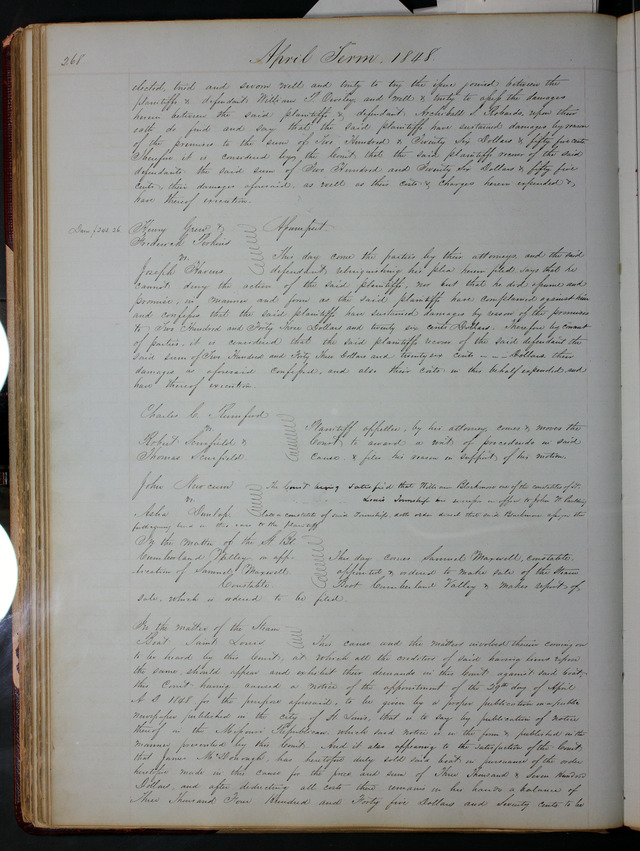 268
April Term, 1848.
elected, tried and sworn well and truly to try the issue joined between the
plaintiffs & defendant William P. and well & truly to assess the damages
herein between the said plaintiffs & defendant Archibald S. Robards, upon their
oath do find and say that the said plaintiffs have sustained damages by reason
of the premises to the sum of Two Hundred & Twenty Six Dollars & fifty five cents
Therefore it is considered by the Court, that the said plaintiffs recover of the said
defendants the said sum of Two Hundred and Twenty Six Dollars & fifty five
cents, their damages aforesaid, as well as their costs & charges herein expended &
have thereof execution.
Henry &
Frederick
vs
Joseph
Assumpsit.
This day come the parties by their attorneys and the said
defendant, relinquishing his plea herein filed, says that he
cannot deny the action of the said plaintiffs, nor but that he did assume and
promise, in manner and form as the said plaintiffs have complained against him
and confesses that the said plaintiffs have sustained damages by reason of the premises
to Two Hundred and Forty Nine Dollars and twenty six cents Dollars. Therefore by consent
of parties, it is considered that the said plaintiffs recover of the said defendant the
said sum of Two Hundred and Forty Nine Dollars and twenty six cents - - - Dollars their
damages as aforesaid confessed, and also their costs in this behalf expended, and
have thereof execution.
Charles C.
vs
Robert &
Thomas
Plaintiff appellee, by his attorney comes & moves the
Court, to award a writ of procedendo in said
cause & files his reasons in support of his motion.
John Newcum
vs
Asha Dunlap
The Court having satisfied that William Blackman one of the constables of St.
Louis Township, his successor in office to John W.
late a constable of said Township, doth order that said Blackman
judgment in this case to the plaintiff
In the matter of the St Bt.
Cumberland Valley on app-
lication of Samuel Maxwell
Constable
This day comes Samuel Maxwell, constable
appointed & ordered to make sale of the Steam
Boat Cumberland Valley & makes report of,
sale, which is ordered to be filed.
In the matter of the Steam
Boat Saint Louis
This cause and the matters involved therein coming on
to be heard by this Court, at which all the creditors of said having liens upon
the same should appear and exhibit their demands in this Court against said boat,
this Court having caused a notice of the appointment of the 29th day of April
A D 1848 for the purpose aforesaid, to be given by a proper publication in a public
newspaper published in the City of St Louis, that is to say by publication of notice
thereof in the Missouri Republican which said notice is in the form & published in the
manner prescribed by this Court. And it also appearing to the satisfaction of the Court
that James McDonough, has heretofore duly sold said boat in pursuance of the order
heretofore made in this cause for the price and sum of Three Thousand & Seven Hundred
Dollars, and after deducting all costs there remains in his hands a balance of
Three Thousand Four Hundred and Forty five Dollars and Seventy cents to be